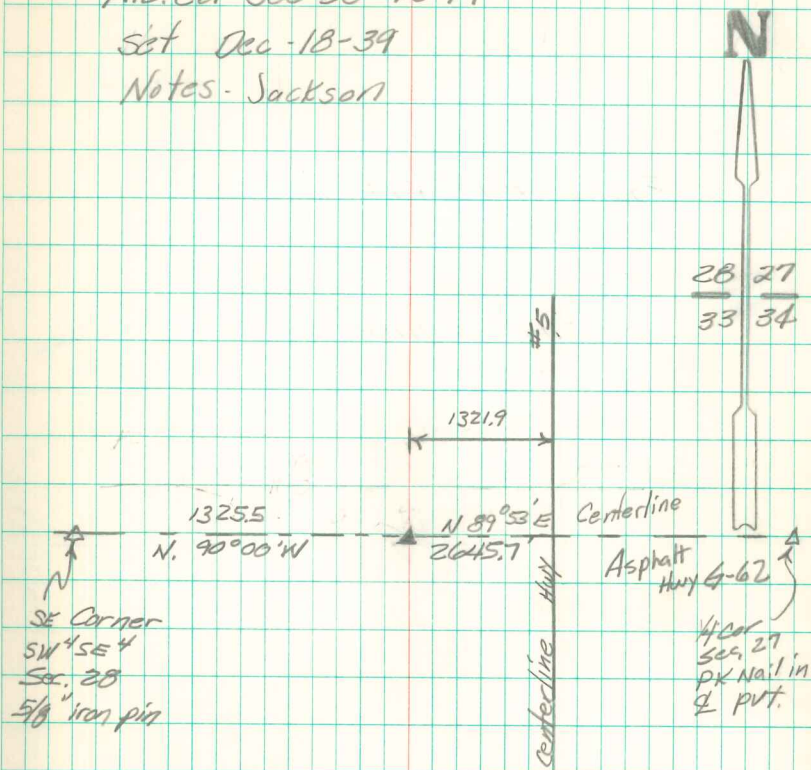 set Dec-18-39
Notes- Jackson
N
28 27
33 34
#5
1321.9
1325.5
N. 90°00'W
N 89°53'E
2645.7'
Centerline
Asphalt
Hwy G-62
centerline Hwy
SE Corner
SW⁴ SE⁴
Sec. 28
5/8" iron pin
1/4 cor
sec. 27
PK Nail in
℄ pvt.